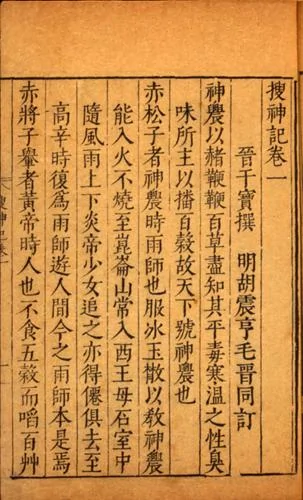 搜神記卷一
晉干寶撰 明胡震亨毛晉同訂
神農以赭鞭鞭百草盡知其平毒寒温之性臭
味所主以播百穀故天下號神農也
赤松子者神農時雨師也服冰玉散以教神農
能入火不燒至崑崙山常入西王母石室中
隨風雨上下炎帝少女追之亦得僊俱去至
高辛時復爲雨師遊人間今之雨師本是焉
赤將子轝者黃帝時人也不食五穀而啗百艸
搜神記卷一